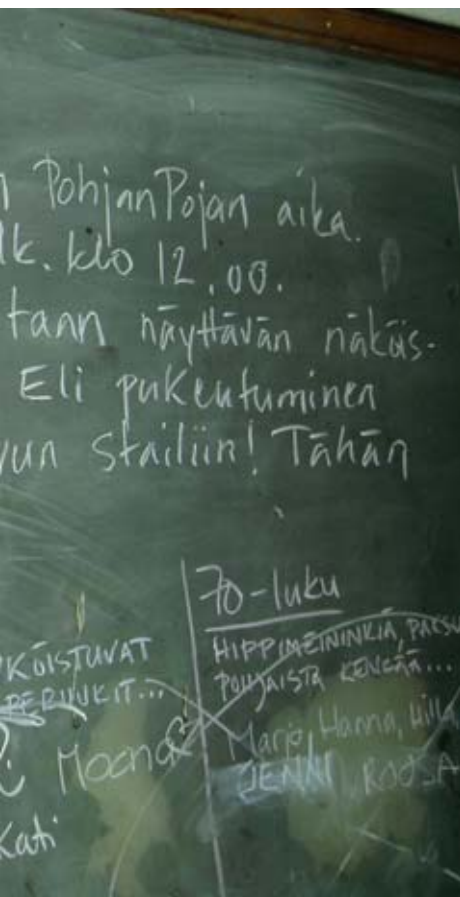 n PohjanPojan aika.
lk. klo 12.00.
tann näyttävän näköis-
Eli pukeutuminen
vun stailiin! Tähän
KÖISTUVAT
PERUUKIT...
Moona
Kati
70-luku
HIPPIMEININKIÄ, PAKSU
POHJAISTA KENGÄÄ...
Marjo, Hanna, Milla,
JENNI, ROOSA